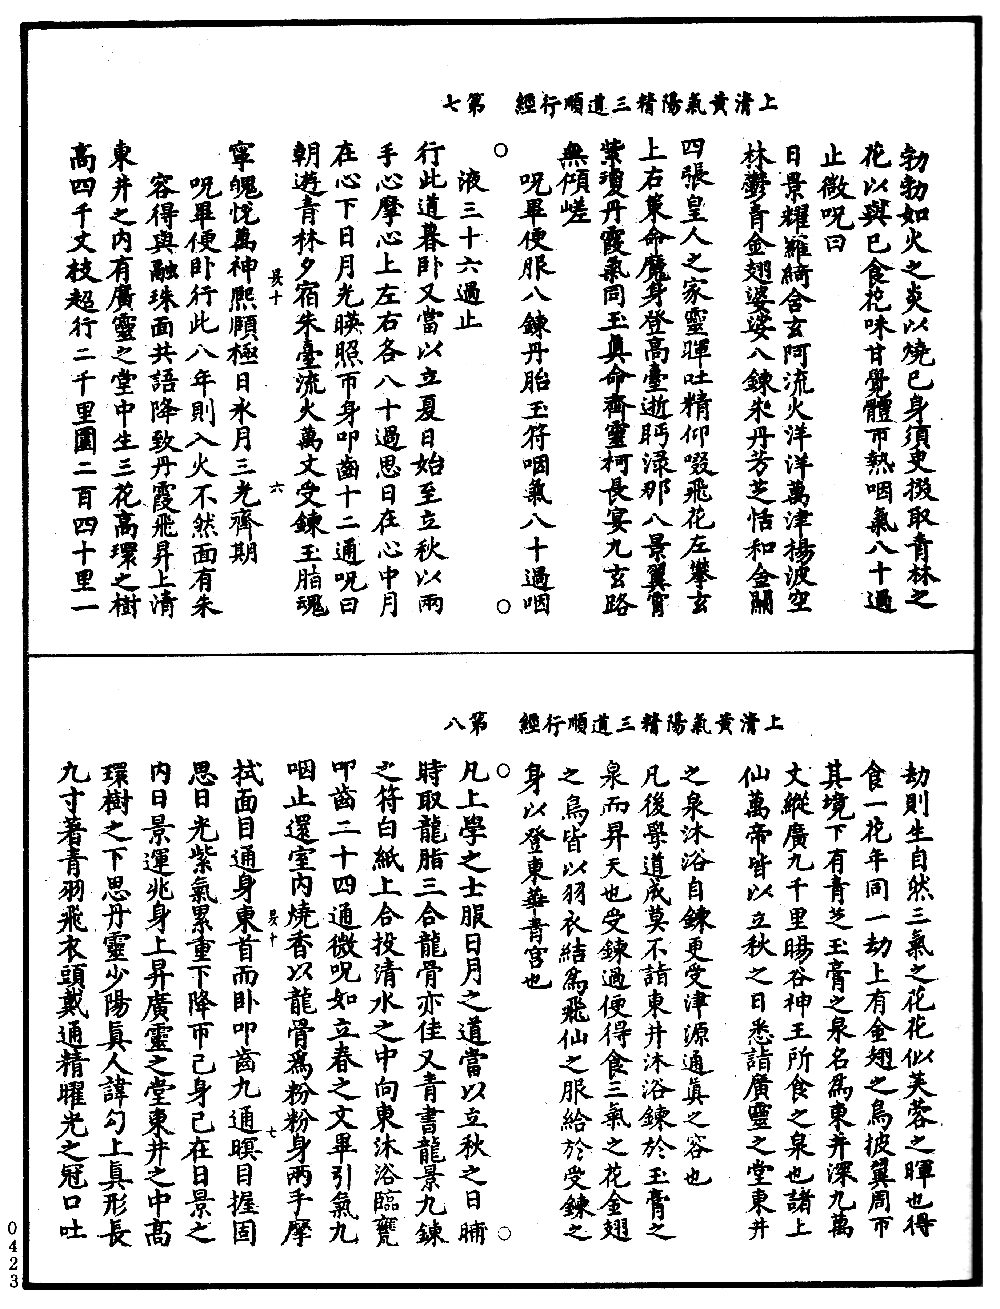 上清黃氣陽精三道順行經　第七
勃勃如火之炎以燒己身須臾掇取青林之
花以與己食花味甘覺體帀熱咽氣八十過
止微呪曰
日景耀蘿綺合玄阿流火洋洋萬津楊波空
林鬱青金翅婆娑八鍊朱丹芳芝恬和金關
四張皇人之家靈暉吐精仰啜飛花左攀玄
上右策命魔身登高臺逝眄淥那八景翼霄
紫瓊丹霞氣同玉真命齊靈柯長宴九玄路
無傾嵯
呪畢便服八鍊丹胎玉符咽氣八十過咽
液三十六過止
行此道暮卧又當以立夏日始至立秋以兩
手心摩心上左右各八十過思日在心中月
在心下日月光暎照帀身叩齒十二通呪曰
朝遊青林夕宿朱臺流火萬丈受鍊玉脂魂
寧魄悅萬神熙願極日永月三光齊期
呪畢便卧行此八年則入火不然面有朱
容得與融珠面共語降致丹霞飛昇上清
東井之內有廣靈之堂中生三花高環之樹
高四千丈枝超行二千里圍二百四十里一
上清黃氣陽精三道順行經　第八
劫則生自然三氣之花花似芙蓉之暉也得
食一花年同一劫上有金翅之鳥披翼周帀
其境下有青芝玉膏之泉名為東井深九萬
丈縱廣九千里暘谷神王所食之泉也諸上
仙萬帝皆以立秋之日悉詣廣靈之堂東井
之泉沐浴自鍊更受津源通真之容也
凡後學道成莫不詣東井沐浴鍊於玉膏之
泉而昇天也受鍊過便得食三氣之花金翅
之鳥皆以羽衣結為飛仙之服給於受鍊之
身以登東華青宮也
凡上學之士服日月之道當以立秋之日晡
時取龍脂三合龍骨亦佳又青書龍景九鍊
之符白紙上合投清水之中向東沐浴臨甕
叩齒二十四通微呪如立春之文畢引氣九
咽止還室內燒香以龍骨為粉粉身兩手摩
拭面目通身東首而卧叩齒九通瞑目握固
思日光紫氣累重下降帀己身己在日景之
內日景運兆身上昇廣靈之堂東井之中高
環樹之下思丹靈少陽真人諱勾上真形長
九寸著青羽飛衣頭戴通精曜光之冠口吐
0423